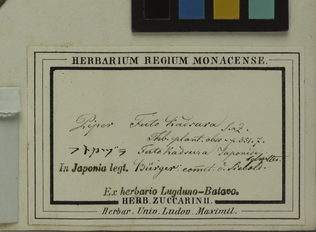 HERBARIUM REGIUM MONACENSE.
Piper Futo Kadsura
フトカヅラ Futo Kadsura Japonice
In Japonia legt. Bürger comit. a Siebold
Ex herbario Lugduno-Batavo.
HERB. ZUCCARINII.
Herbar. Univ. Ludov. Maximil.